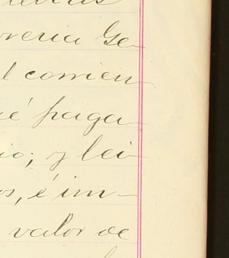 Ge-
l comien
é paga
io; y lei
os, é im-
valor de